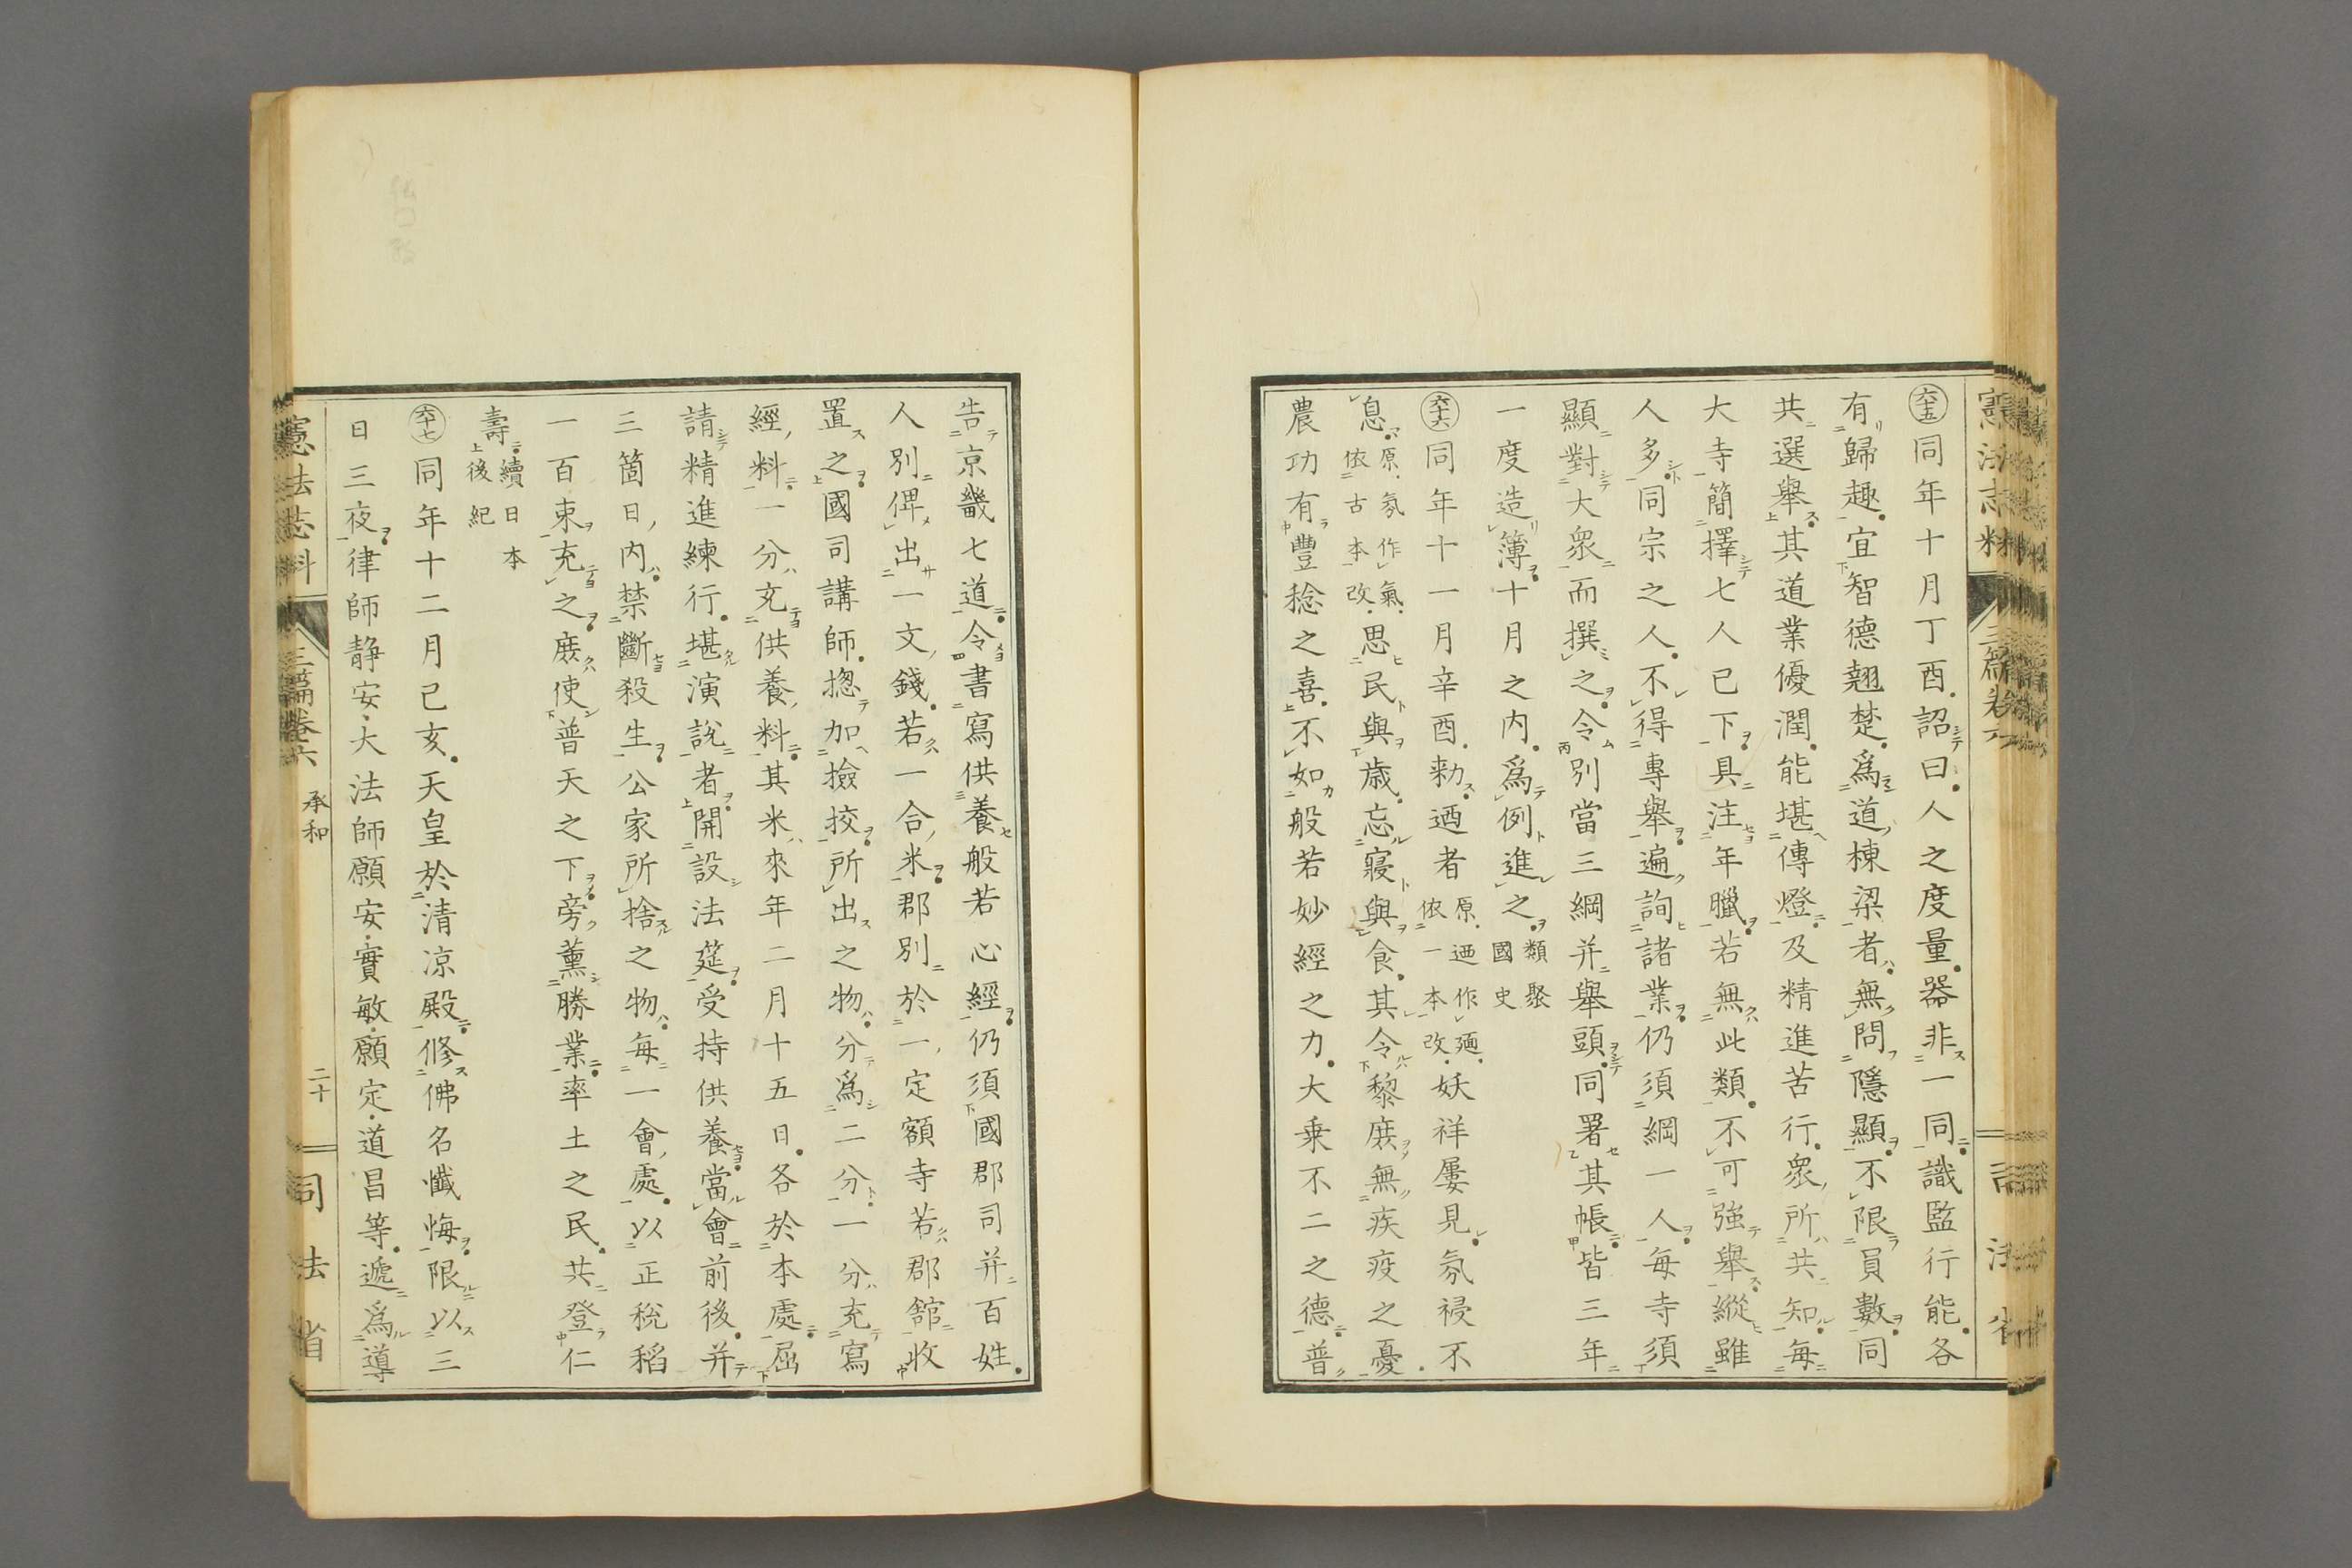 六十五同年十月丁酉.詔曰.人之度量.器非一同識監行能.各
有歸趣.宜智德翹楚.爲道棟梁者.無問隱顯.不限員數.同
共選擧.其道業優潤.能堪傳燈.及精進苦行.衆所共知.每
大寺簡擇七人已下.具注年臘.若無此類.不可強擧.縱雖
人多同宗之人.不得專擧.遍詢諸業.仍須綱一人.每寺須
顯對大衆而撰之.令別當三綱并擧頭.同署其帳.皆三年
一度造簿.十月之内.爲例進之.類聚國史
六十六同年十一月辛酉.勅.迺者原.迺作廼.依一本改.妖祥屢見.氛祲不
息.原.氛作氣.依古本改.思民與歳.忘寢與食.其令黎庶無疾疫之憂.
農功有豐稔之喜.不如般若妙經之力.大乗不二之德.普
告京畿七道.令書寫供養般若心經.仍須國郡司并百姓.
人別俾出一文錢.若一合米.郡別於一定額寺若郡舘収
置之.國司講師.揔加撿挍.所出之物.分爲二分.一分充寫
經料.一分充供養料.其米來年二月十五日.各於本處.屈
請精進練行.堪演説者.開設法筵.受持供養.當會前後.并
三箇日内.禁斷殺生.公家所捨之物.每一會處.以正税稻
一百束充之.庶使普天之下.旁薫勝業.率土之民.共登仁
壽.續日本後紀
六十七同年十二月已亥.天皇於清凉殿.修佛名懺悔.限以三
日三夜.律師静安.大法師願安.實敏.願定.道昌等.遞爲導
憲法志料
三篇卷六
承和
二十
司法省